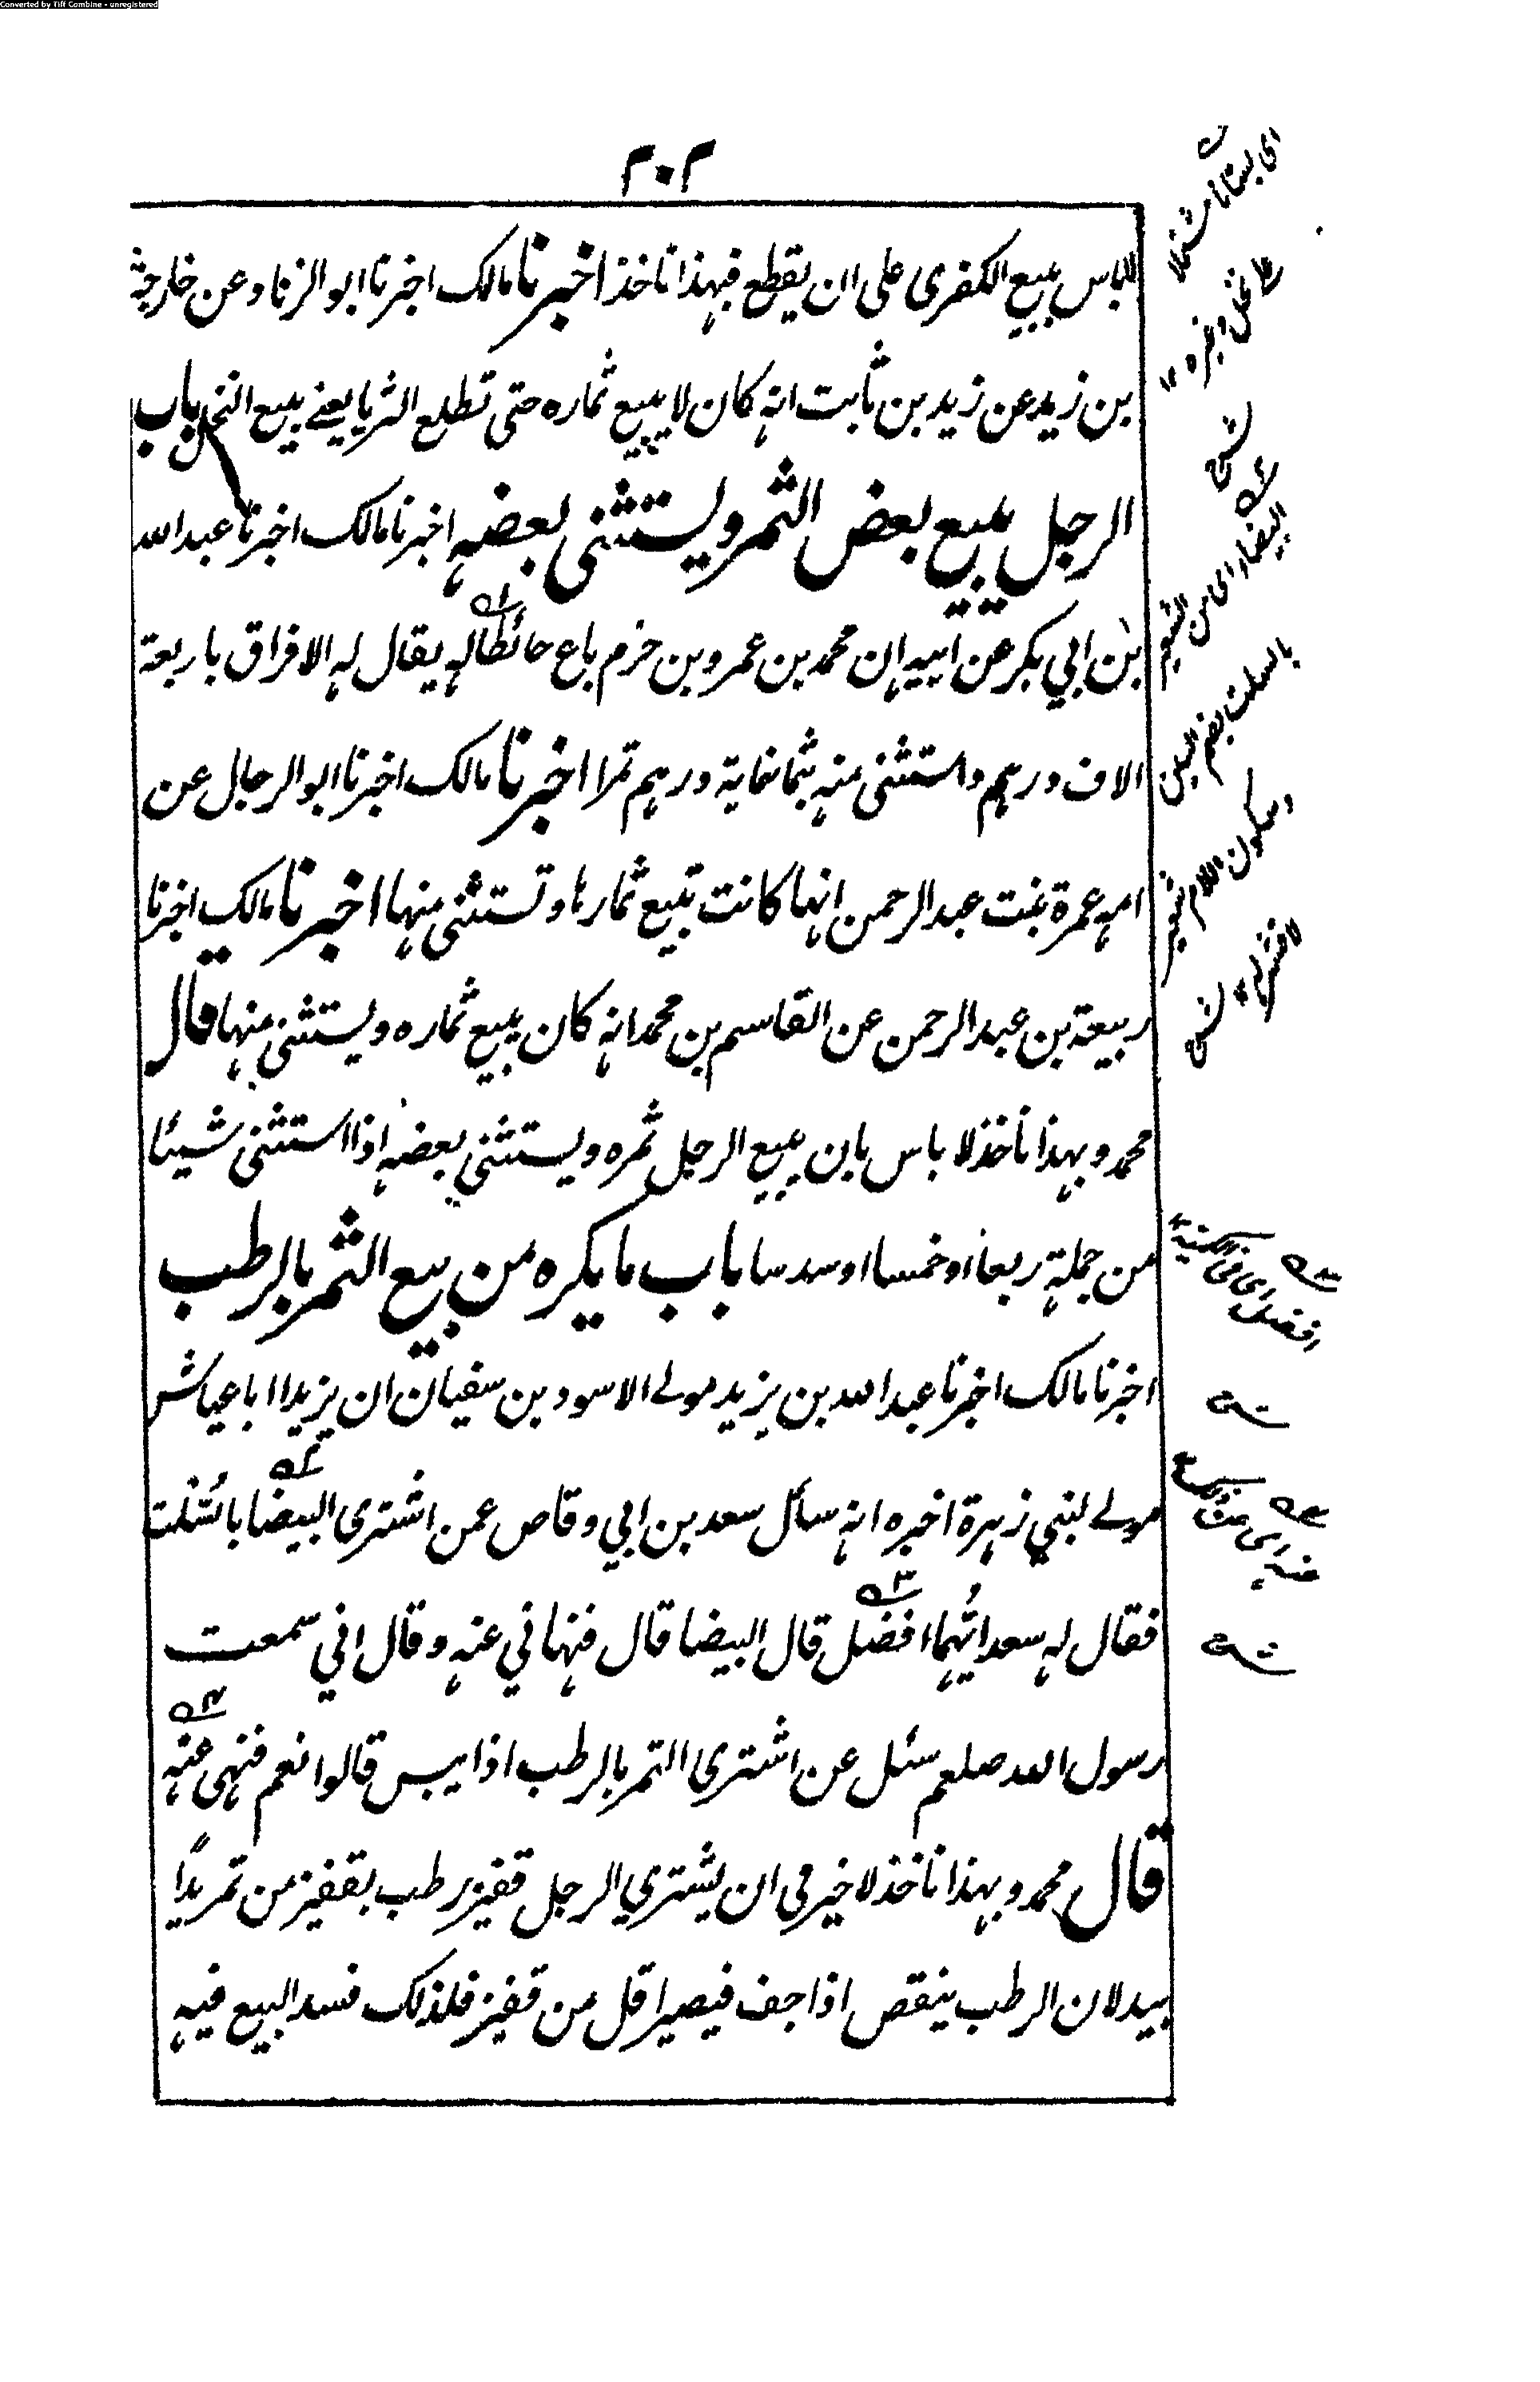 Converted by Tiff Combine - unregistered
٢٠٢
للباس ببيع الكفرى على ان يقطع فبهذا ناخذ اخبرنا مالك اخبرنا ابو الزناد عن خارجة
بن زيد عن زيد بن ثابت انه كان لا يبيع ثماره حتى تطلع الثريا يعنے بيع النخل باب
الرجل يبيع بعض الثمر ويستثنى بعضه اخبرنا مالك اخبرنا عبد الله
بن ابي بكر عن ابيه ان محمد بن عمرو بن حزم باع حائطا له يقال له الافراق باربعة
الاف درهم واستثنى منه بثمانماية درهم تمرا اخبرنا مالك اخبرنا ابو الرجال عن
امه عمرة بنت عبد الرحمن انها كانت تبيع ثمارها وتستثنى منها اخبرنا مالك اخبرنا
ربيعة بن عبد الرحمن عن القاسم بن محمد انه كان يبيع ثماره ويستثنى منها قال
محمد وبهذا ناخذ لا باس بان يبيع الرجل ثمره ويستثني بعضه اذا استثنى شيئا
من جملة ربعا او خمسا او سدسا باب ما يكره من بيع التمر بالرطب
اخبرنا مالك اخبرنا عبد الله بن يزيد مولے الاسود بن سفيان ان يزيدا ابا عياش
مولے لبني زهرة اخبره انه سأل سعد بن ابي وقاص عمن اشترى البيضا بالسُّلت
فقال له سعد ايُّهما افضل قال البيضا قال فنهاني عنه وقال اني سمعت
رسول الله صلعم سئل عن اشتري التمر بالرطب اذا يبس قالوا نعم فنهى عنه
قال محمد وبهذا ناخذ لا خير في ان يشتري الرجل قفيز رطب بقفيز من تمر يدًا
بيد لان الرطب ينقص اذا جف فيصير اقل من قفيز فلذلك فسد البيع فيه
اى بستانا مشتملا
على نخل وغيره ١٢
البيضاء اى من الشعير
بالسلت بضم السين
وسكون اللام شعير
لا قشر له